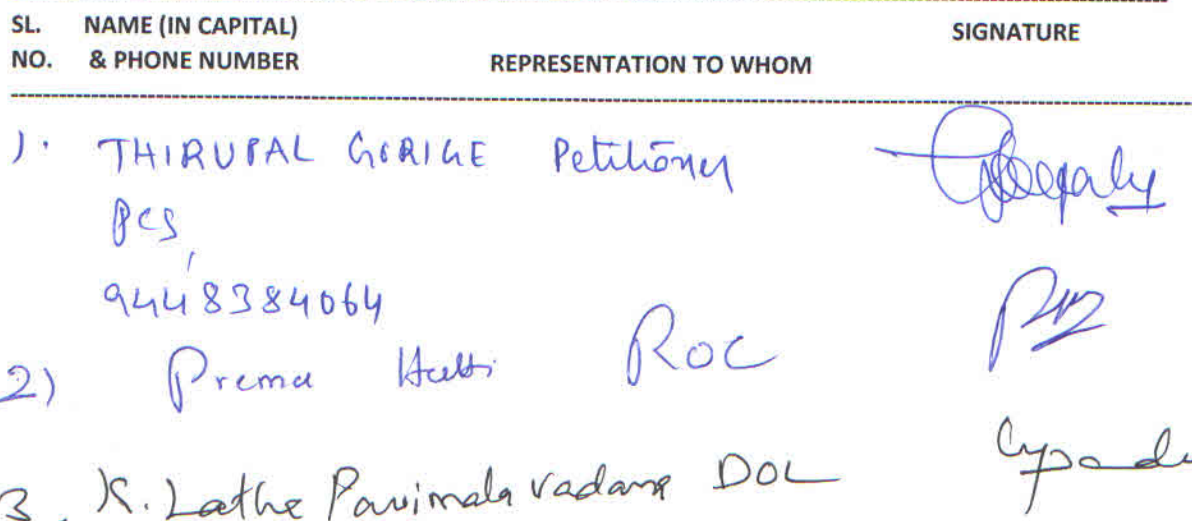 SL. NAME (IN CAPITAL) SIGNATURE
NO. & PHONE NUMBER REPRESENTATION TO WHOM
1. THIRUPAL GORIGE Petitioner
PCS,
9448384064
2) Prema Hatti ROC
3. K. Lathe Parimala vadana DOL